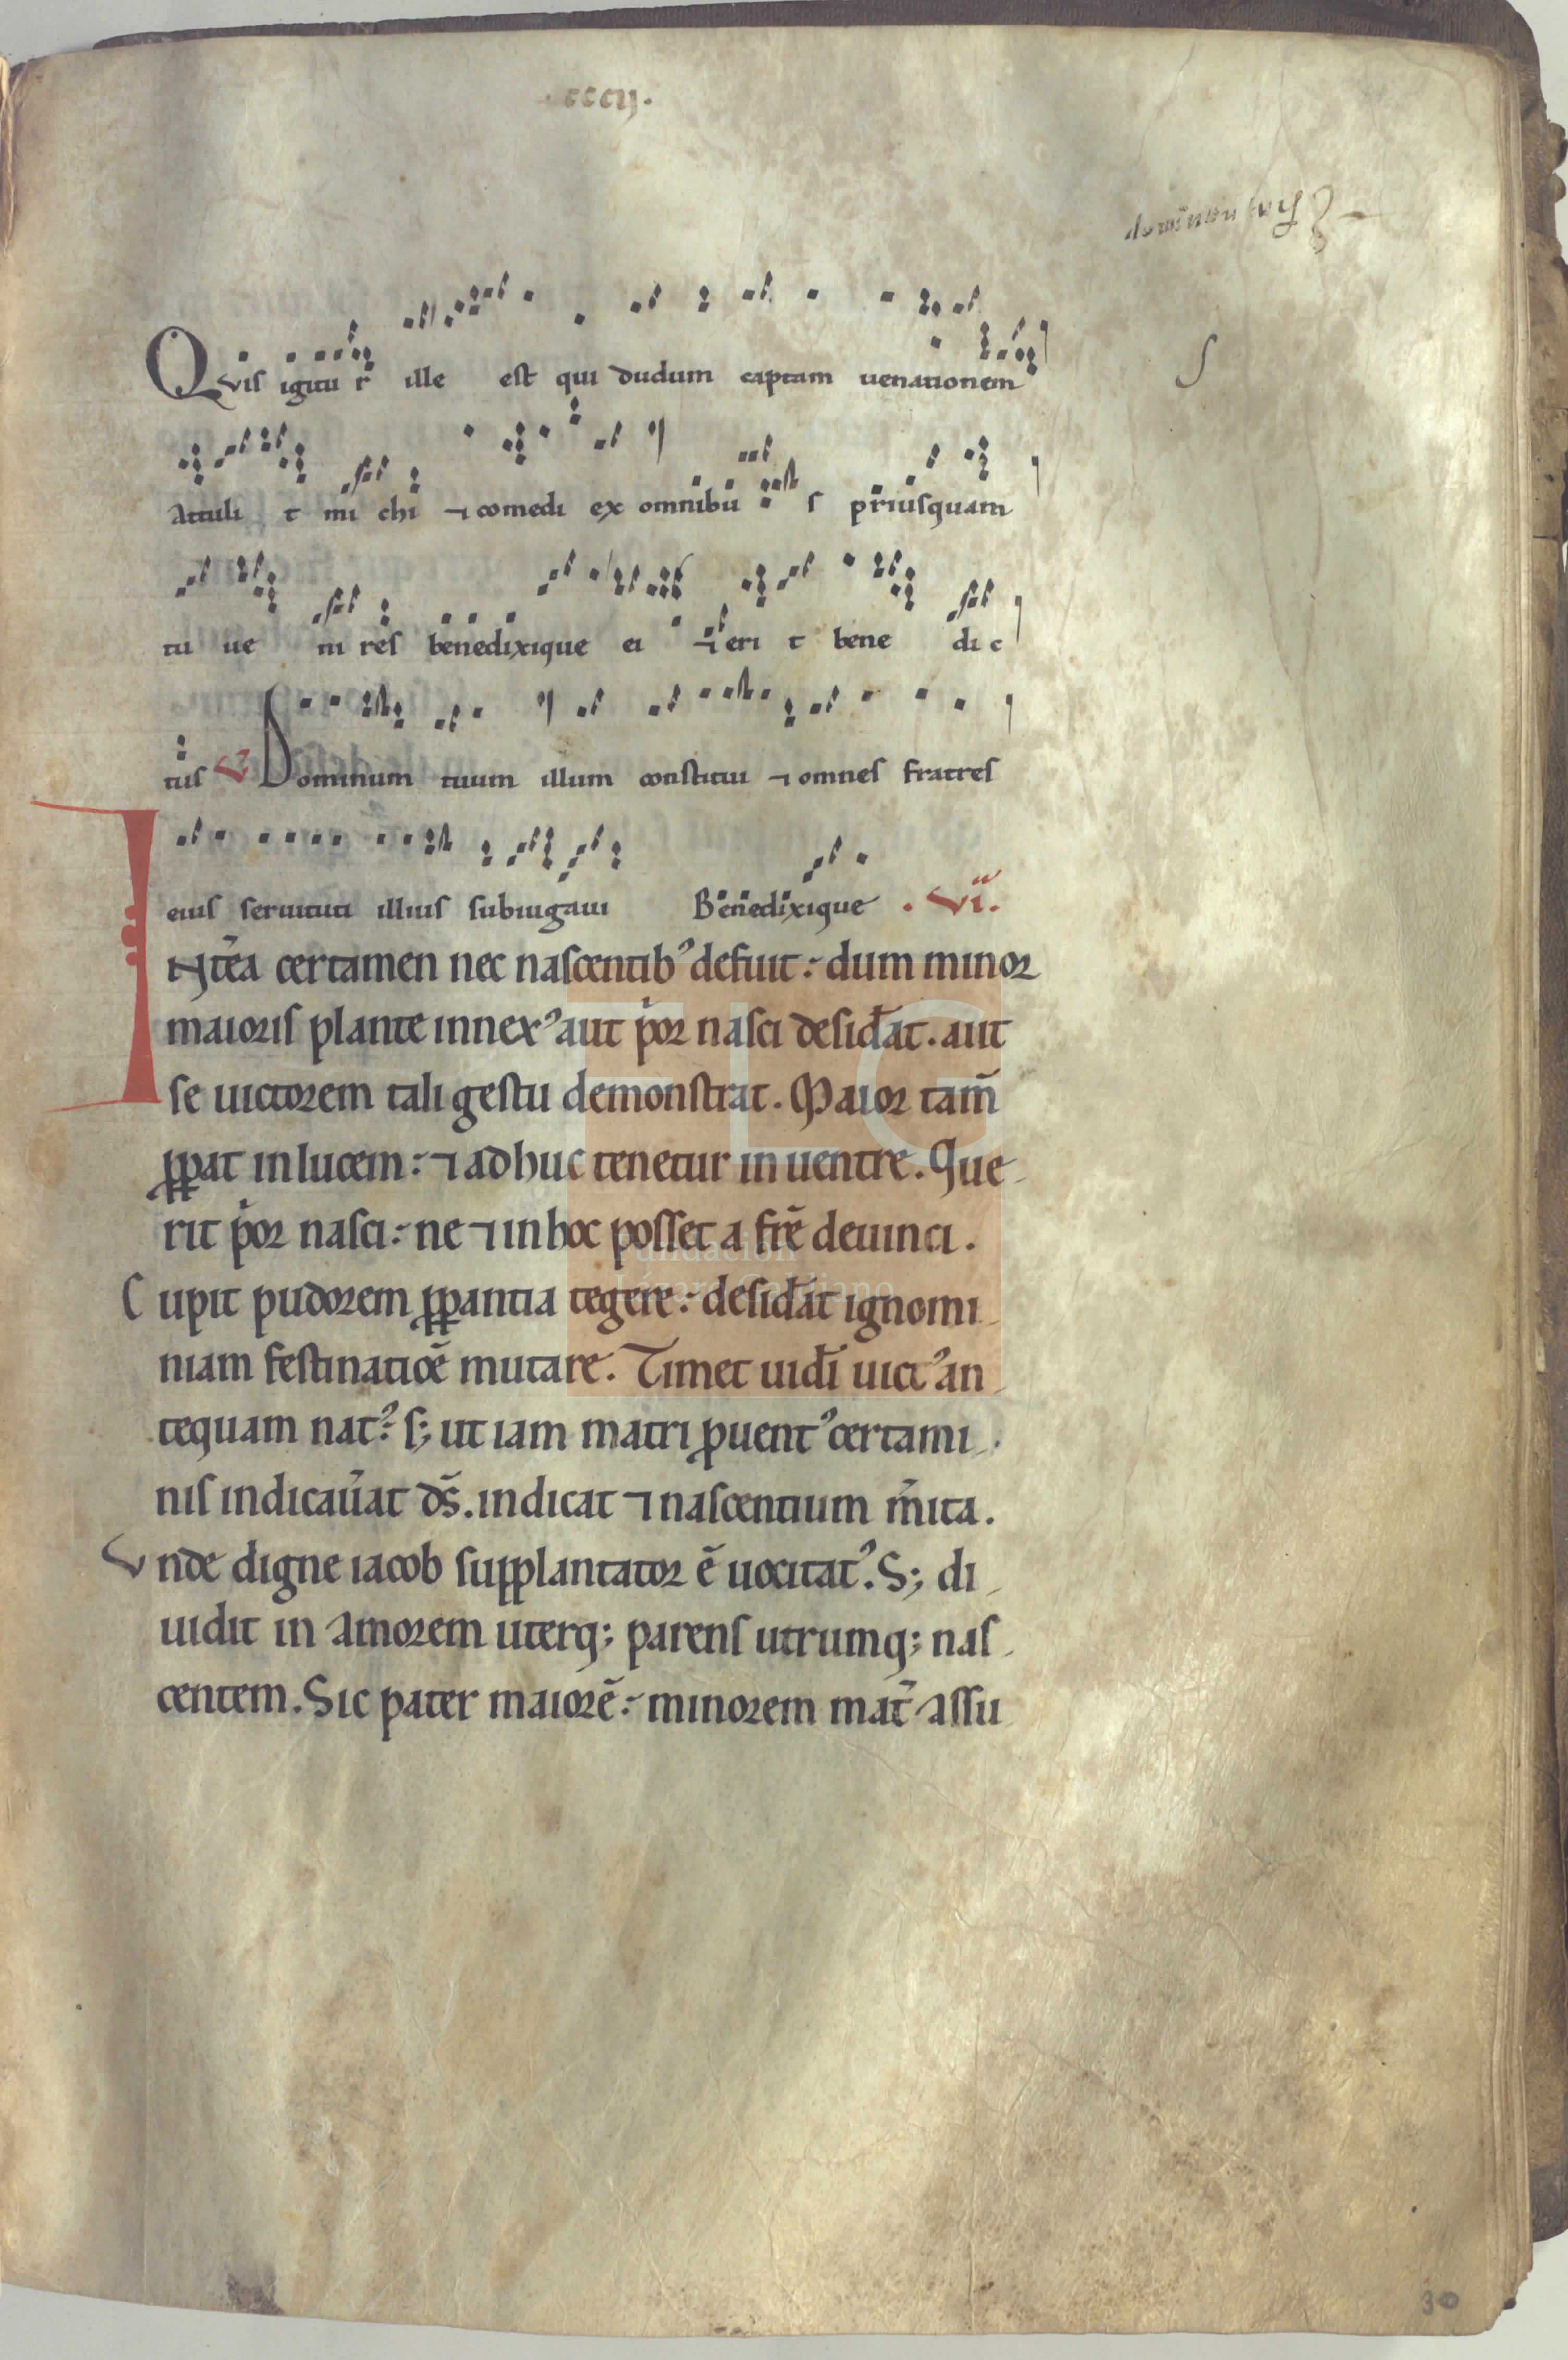 ccccij.
Quis igitur ille est qui dudum captam uenationem
attulit michi ⁊ comedi ex omnibus priusquam
tu uenires benedixique ei ⁊ erit benedic
tus V Dominum tuum illum constitui ⁊ omnes fratres
eius seruituti illius subiugaui Benedixique . VII.
INtēa certamen nec nascentib᾿ defuit: dum minor
maioris plante innex᾿ aut p̍or nasci desid̄at. aut
se uictorem tali gestu demonstrat. Maior tam̄
ꝓꝑat in lucem: ⁊ adhuc tenetur in uentre. Que
rit p̍or nasci: ne ⁊ in hoc posset a fr̄e deuinci.
Cupit pudorem ꝓꝑantia tegere: desid̄at ignomi
niam festinatiōē mutare. Timet uid̄i uict᾿ an
tequam nat᾿: s; ut iam matri ꝓuent᾿ certami
nis indicau̾at d̄s. indicat ⁊ nascentium m̄ita.
Vnde digne iacob supplantator ē uocitat᾿. S; di
uidit in amorem uterq; parens utrumq; nas
centem. Sic pater maiorē: minorem mat̄ assu
Fundación
Lázaro Galdiano
FLG
30